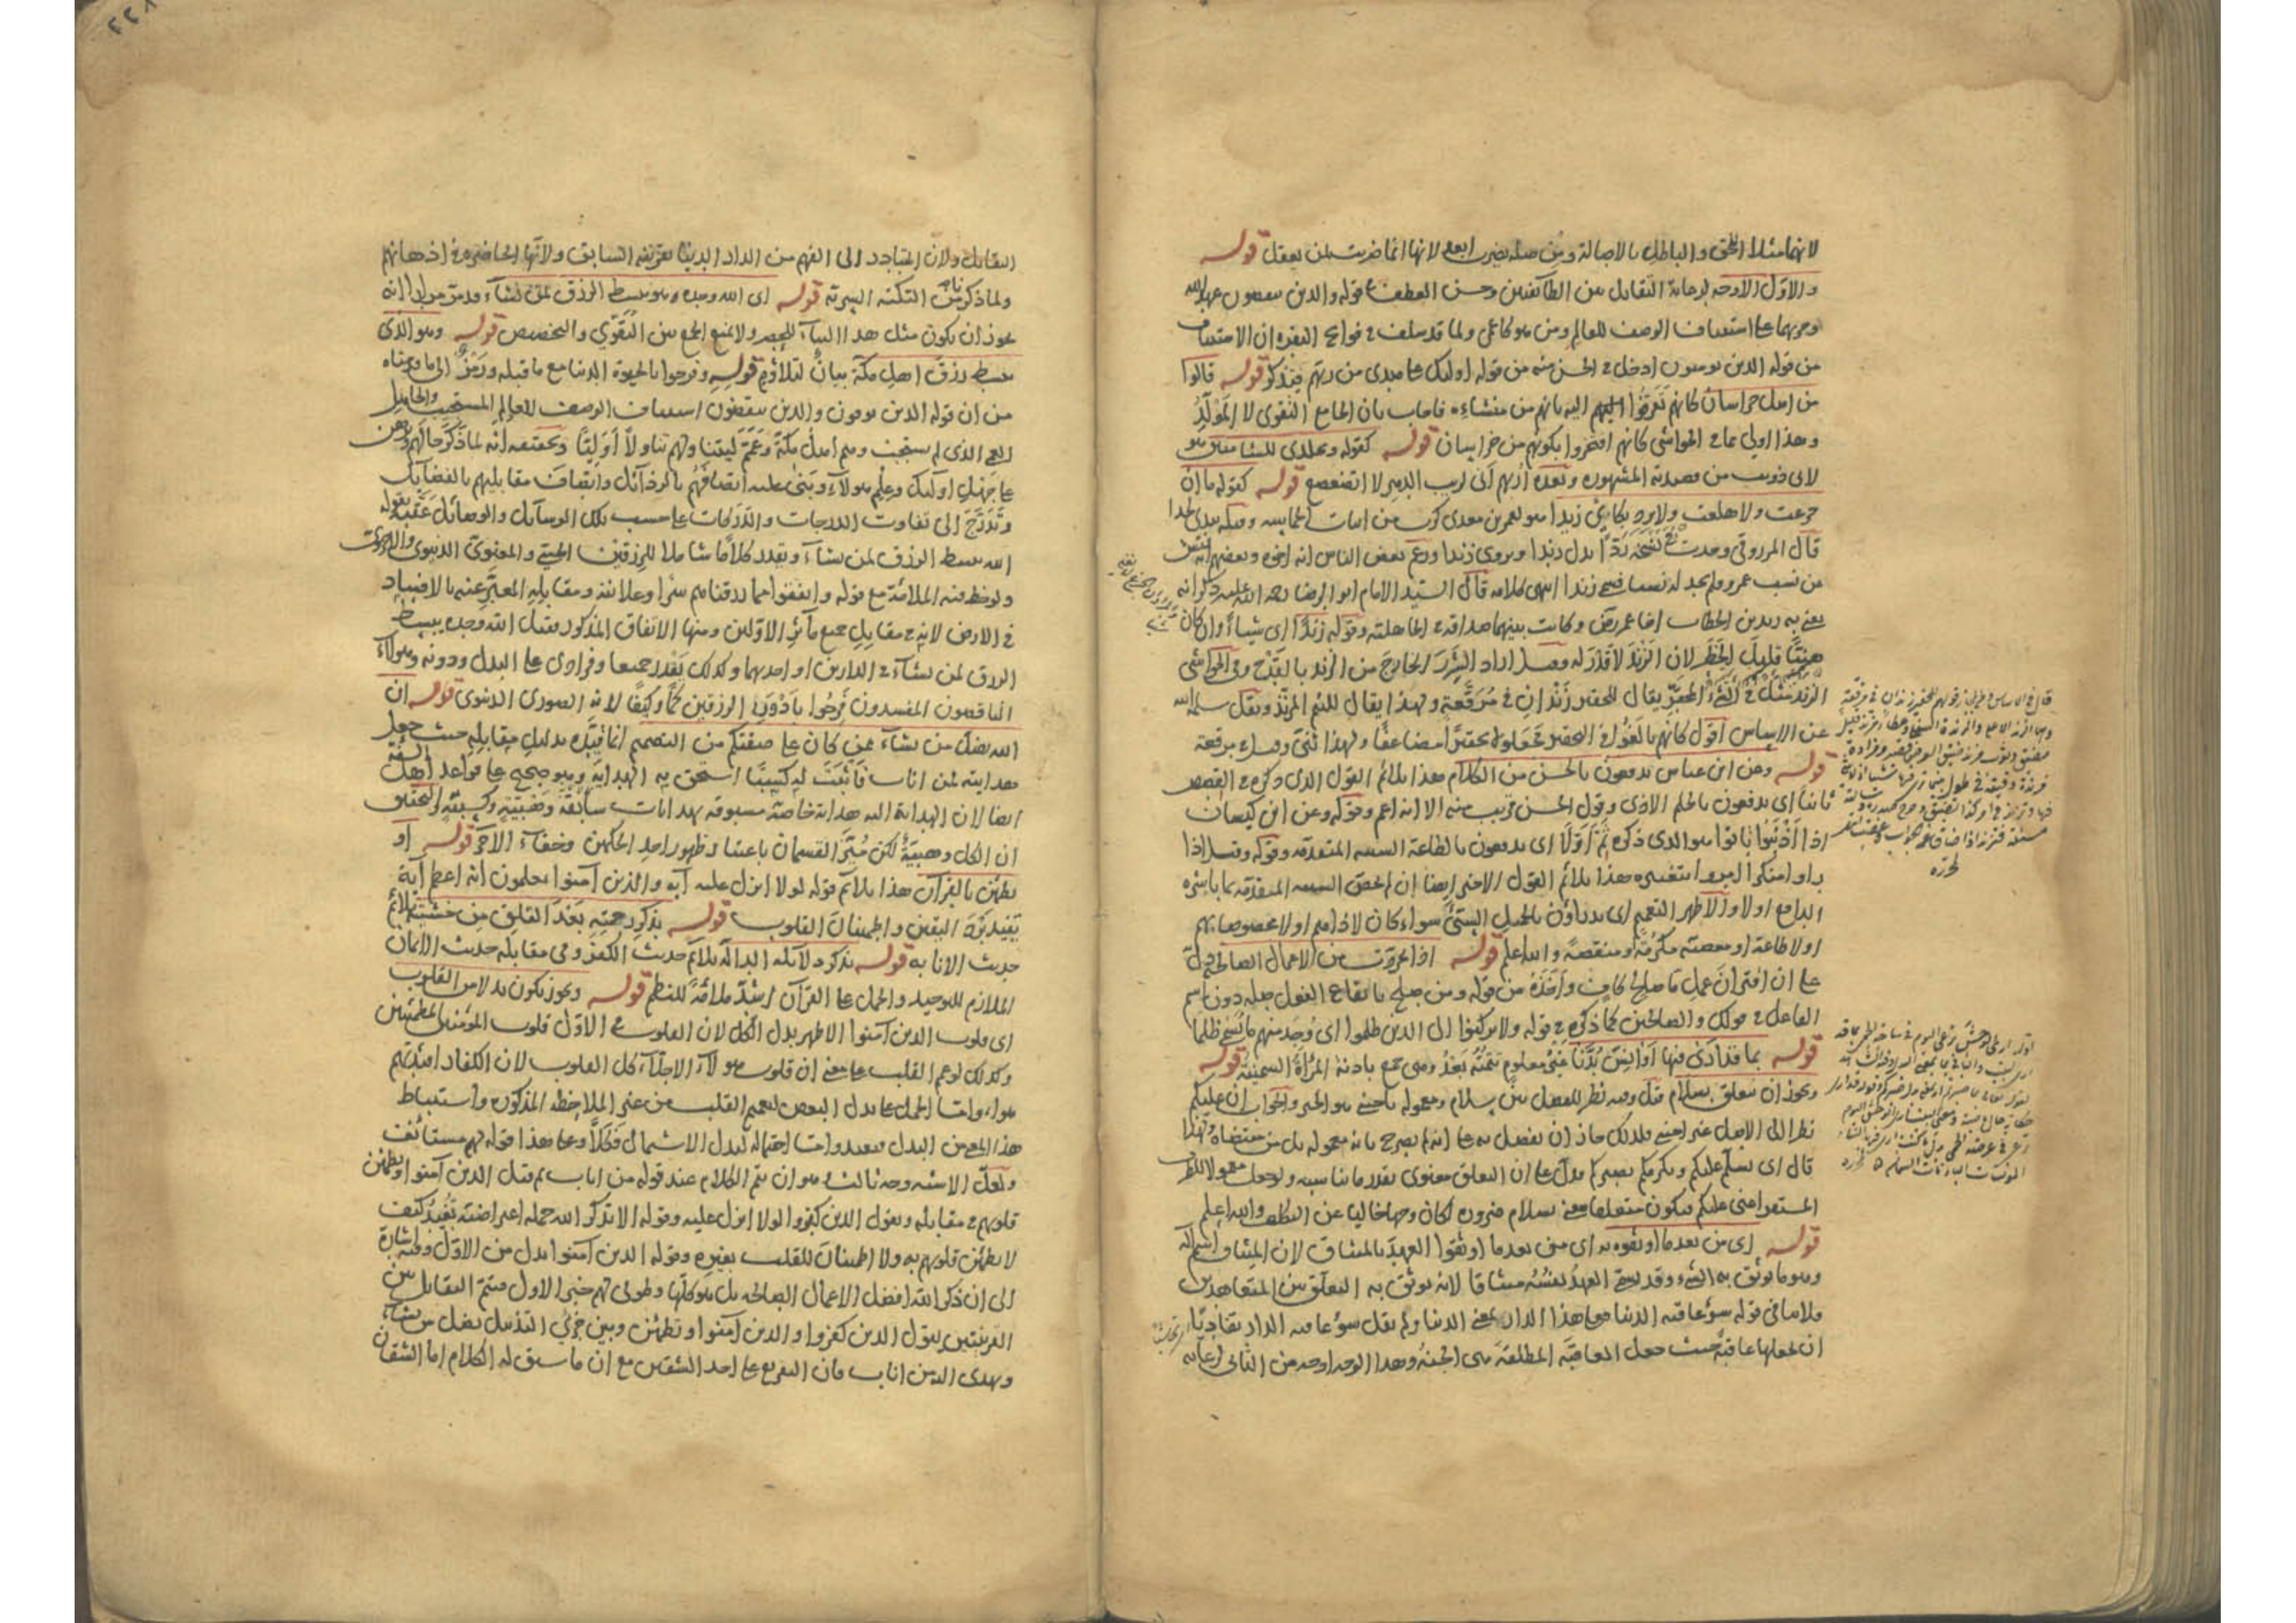 لانهما مثلا الحق والباطل بالاصالة ومن صلة يضرب ابعد لانها انما ضربت لمن يعقل قوله
والاول الاوجه لرعاية التقابل بين الطائفتين وحسن العطف في قوله والذين ينقضون عهد الله
وجريهما على استئناف الوصف للعالم ومن هو كاعمى ولما قد سلف في فواتح البقرة ان الاستئناف
من قوله الذين يؤمنون ادخل في الحسن منه من قوله اولئك على هدى من ربهم فتذكر قوله قالوا
من اهل خراسان كانهم تعرفوا اليهم اليه بانهم من منشاءه فاجاب بان الجامع التقوى لا المولد
وهذا اولى مما في الحواشى كانهم افتخروا بكونهم من خراسان قوله كقوله وتجلدى للشامتين هو
لابى ذويب من قصيدته المشهورة وبعده اريهم انى لريب الدهر لا اتضعضع قوله كقوله ما ان
جزعت ولا هلعت ولا يرد بكاى زيدا هو لعمرو بن معدى كرب من ابيات الحماسة
قال المرزوقى وجدت في نسخة بدل زيدا ويروى زندا وزعم بعض الناس انه اخوه وبعضهم
من نسب عمرو ولم يجد له نسبا فيه زندا انتهى كلامه قال السيد الامام ابو الرضا رحمه الله عليه ذكر انه
يعنى به زيد بن الخطاب اخا عمر رض وكانت بينهما صداقة في الجاهلية وقوله زندا اى شيئا وان كان
هينا قليل الخطر لان الزند لا قدر له وقيل اراد الشرر الخارج من الزند بالقدح وفى الحواشى
الزند مثل في الشىء الحقير يقال للحقير زندان في مرقعة ولهذا يقال للئيم المزند ونقل سلمه الله
عن الاساس اقول كانهم بالغوا في التحقير فجعلوه حقيرا مضاعفا ولهذا ثنى وقيل في مرقعة
قوله وعن ابن عباس يدفعون بالحسن من الكلام هذا يلائم القول الذى ذكره في القصص
ثانيا اى يدفعون بالحلم الاذى وقول الحسن قريب منه الا انه اعم وقوله وعن ابن كيسان
اذا اذنبوا تابوا هو الذى ذكره ثم اولا اى يدفعون بالطاعة السيئة المتقدمة وقوله وقيل اذا
راوا منكرا امروا بتغييره هذا يلائم القول الاخير ايضا ان لحق السيئة المتقدمة بما باشره
الدافع اولا والاظهر التعميم اى يدراؤن بالجميل السيئ سواء كان لاذاهم او لا مخصوصا بهم
اولا طاعة او معصية مكرمة او منقصة والله اعلم قوله اذا عريت من الاعمال الصالحة دل
على ان اقتران عمل ما صالح كاف واخذه من قوله ومن صلح بايقاع الفعل صلة دون اسم
الفاعل في قولك والصالحين كما ذكره في قوله ولا تركنوا الى الذين ظلموا اى وجد منهم ما يسمى ظلما
قوله بما قد ارى فيها اوانس بدنا معلوم تتمته بعد وهى جمع بادنة المراة السمينة قوله
ويجوز ان يتعلق بسلام قيل وفيه نظر للفصل بين سلام ومعموله باجنبى هو الخبر والجواب ان عليكم
نظرا الى الاصل غير اجنبى فلذلك جاز ان يفصل به على انه لم يصرح بانه معموله بل من مقتضاه ولهذا
قال اى يسلم عليكم ويكرمكم بصبركم يدل على ان التعلق معنوى يقدر ما يناسبه ولو جعل معمولا للظرف
المستقر اعنى عليكم فيكون متعلقا بمعنى سلام ضرورة لكان وجها خاليا عن التكلف والله اعلم
قوله اى من بعد ما اوثقوه به اى من بعد ما اوثقوا العهد بالميثاق لان الميثاق اسم آلة
وهو ما يوثق به الشىء وقد يسمى العهد نفسه ميثاقا لانه يوثق به التعلق بين المتعاهدين
ملاءما في قوله سوء عاقبة الدنيا مع هذا الدار بمعنى الدنيا ولم يقل سوء عاقبة الدار تفاديا
ان يجعلها عاقبة حيث جعل العاقبة المطلقة هى الجنة وهذا الوجه اوجه من الثانى لرعاية
التقابل ولان المتبادر الى الفهم من الدار الدنيا بقرينة السابق ولانها الحاضرة في اذهانهم
ولما ذكر من النكتة السرية قوله اى الله وحده هو يبسط الرزق لمن يشاء وقد مر مرارا انه
يجوز ان يكون مثل هذا البناء للحصر ولا يمنع الجمع بين التقوى والتخصيص قوله وهو الذى
بسط رزق اهل مكة بيان لتلاؤم قوله وفرحوا بالحيوة الدنيا مع ما قبله ورمز الى ما قدمناه
من ان قوله الذين يوفون والذين ينقضون استئناف الوصف للعالم المستجيب والجاهل
الذى لم يستجب وهم اهل مكة وعمم ليتناولهم تناولا اوليا وتحقيقه انه لما ذكر حالهم
على جهل اولئك وعلم هؤلاء وبنى عليه اتصافهم بالرذائل واتصاف مقابليهم بالفضائل
وتدرج الى تفاوت الدرجات والدركات على حسب تلك الوسائل والوصائل عقبه بقوله
الله يبسط الرزق لمن يشاء ويقدر كلاما شاملا للرزقين الحسى والمعنوى الدنيوى والاخروى
ولوحظ فيه الملائمة مع قوله وانفقوا مما رزقناهم سرا وعلانية ومقابله المعبر عنه بالافساد
في الارض لانه في مقابل جميع مآثر الاولين ومنها الانفاق المذكور فقيل الله وحده يبسط
الرزق لمن يشاء في الدارين او احديهما وكذلك يقدر جميعا وفرادى على البدل ودونه وهؤلاء
الناقضون المفسدون فرحوا بادون الرزقين كما وكيفا لانه الصورى الدنيوى قوله ان
الله يضل من يشاء ممن كان على صفتكم من التصميم انما قيده بدليل مقابله حيث جعل
هدايته لمن اناب فاثبت له كسبا استحق به الهداية وهو صحيح على قواعد اهل السنة
ايضا لان الهداية اليه هداية خاصة مسبوقة بهدايات سابقة وهبية وكسبية والتحقيق
ان الكل وهبية لكن ميز القسمان باعتبار ظهور احد الحكمين وخفاء الآخر قوله او
تطمئن بالقرآن هذا يلائم قوله لولا انزل عليه آية والذين آمنوا يعلمون انه اعظم آية
تفيد برد اليقين واطمينان القلوب قوله بذكر رحمته بعد القلق من خشيته يلائم
حديث الانابة قوله بذكر دلائله الدالة يلائم حديث الكفر وهى مقابله حديث الايمان
الملازم للتوحيد والحمل على القرآن اشد ملائمة للنظم قوله ويجوز يكون بدلا من القلوب
اى قلوب الذين آمنوا الاظهر بدل الكل لان القلوب في الاول قلوب المؤمنين المطمئنين
وكذلك لو عمم القلب على معنى ان قلوب هؤلاء الاجلاء كل القلوب لان الكفار افئدتهم
هواء واما الحمل على بدل البعض ليعمم القلب من غير الملاحظة المذكورة واستنباط
هذا المعنى من البدل فبعيد واما احتماله لبدل الاشتمال فكلا وعلى هذا قوله لهم مستانف
ولعل الاشبه وجه ثالث هو ان يتم الكلام عند قوله من اناب ثم قيل الذين آمنوا وتطمئن
قلوبهم في مقابلة ويقول الذين كفروا لولا انزل عليه وقوله الا بذكر الله جملة اعتراضية تفيد كيف
لا تطمئن قلوبهم به ولا اطمينان للقلب بغيره وقوله الذين آمنوا بدل من الاول وفيه اشارة
الى ان ذكر الله افضل الاعمال الصالحة بل هو كلها وطوبى لهم خبر الاول فيتم التقابل بين
القرينتين ليقول الذين كفروا والذين آمنوا وتطمئن وبين جزئى التذييل يضل من يشاء
ويهدى اليه من اناب فان التفريع على احد الشقين مع ان ما سبق له الكلام اما الشقان